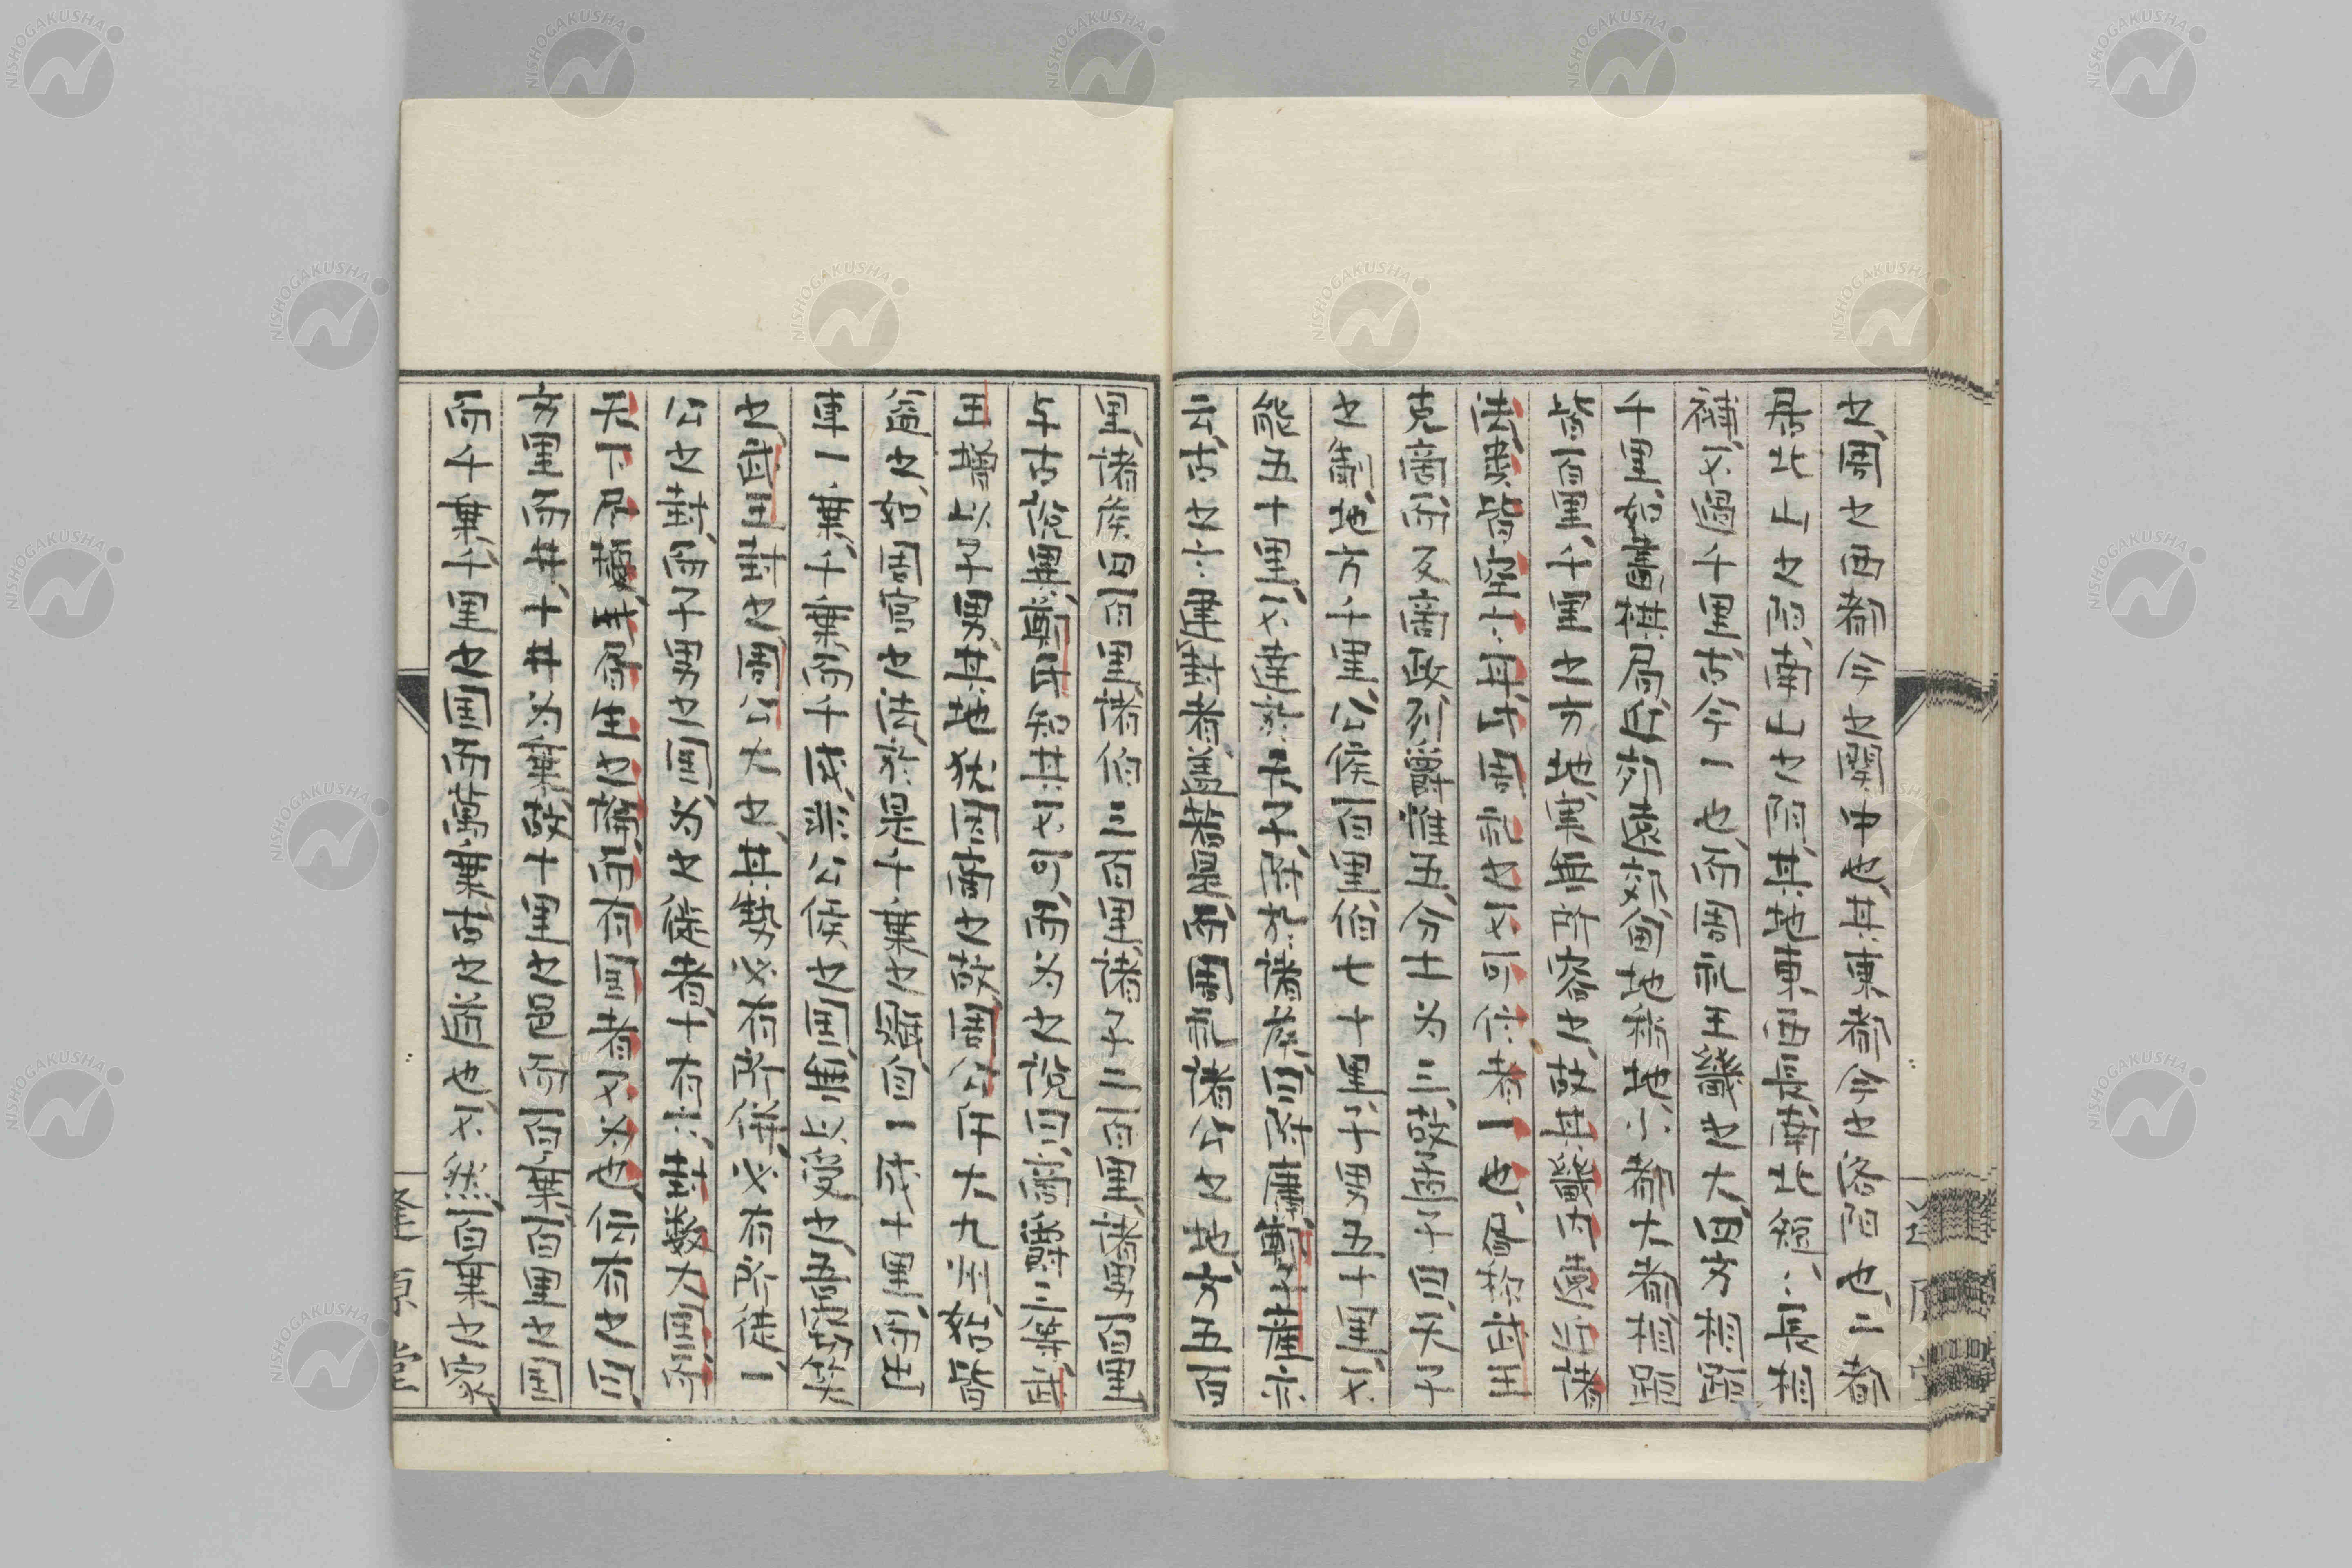 之周之西都今之關中也其東都今之洛陽也二都
居北山之陽南山之陰其地東西長南北短短長相
補不過千里古今一也而周礼王畿之大四方相距
千里如畫棋局近郊遠郊甸地稍地小都大都相距
皆百里千里之方地實無所容之故其畿內遠近諸
法類皆空言耳此周礼之不可信者一也書称武王
克商而反商政列爵惟五分土为三故孟子曰天子
之制地方千里公侯百里伯七十里子男五十里不
能五十里不達於天子附於諸侯曰附庸鄭子産亦
云古之言封建者蓋若是而周礼諸公之地方五百
里諸侯四百里諸伯三百里諸子二百里諸男百里
与古說異鄭氏知其不可而为之說曰商爵三等武
王增以子男其地猶因商之故周公斥大九州始皆
益之如周官之法於是千乗之賦自一成十里而出
車一乗千乗而千成非公侯之国無以受之吾竊笑
之武王封之周公大之其勢必有所併必有所徙一
公之封而子男之国为之徙者十有六封数大国而
天下尽擾此書生之論而有国者不为也伝有之曰
方里而井十井为乗故十里之邑而百乗百里之国
而千乗千里之国而萬乗古之道也不然百乗之家